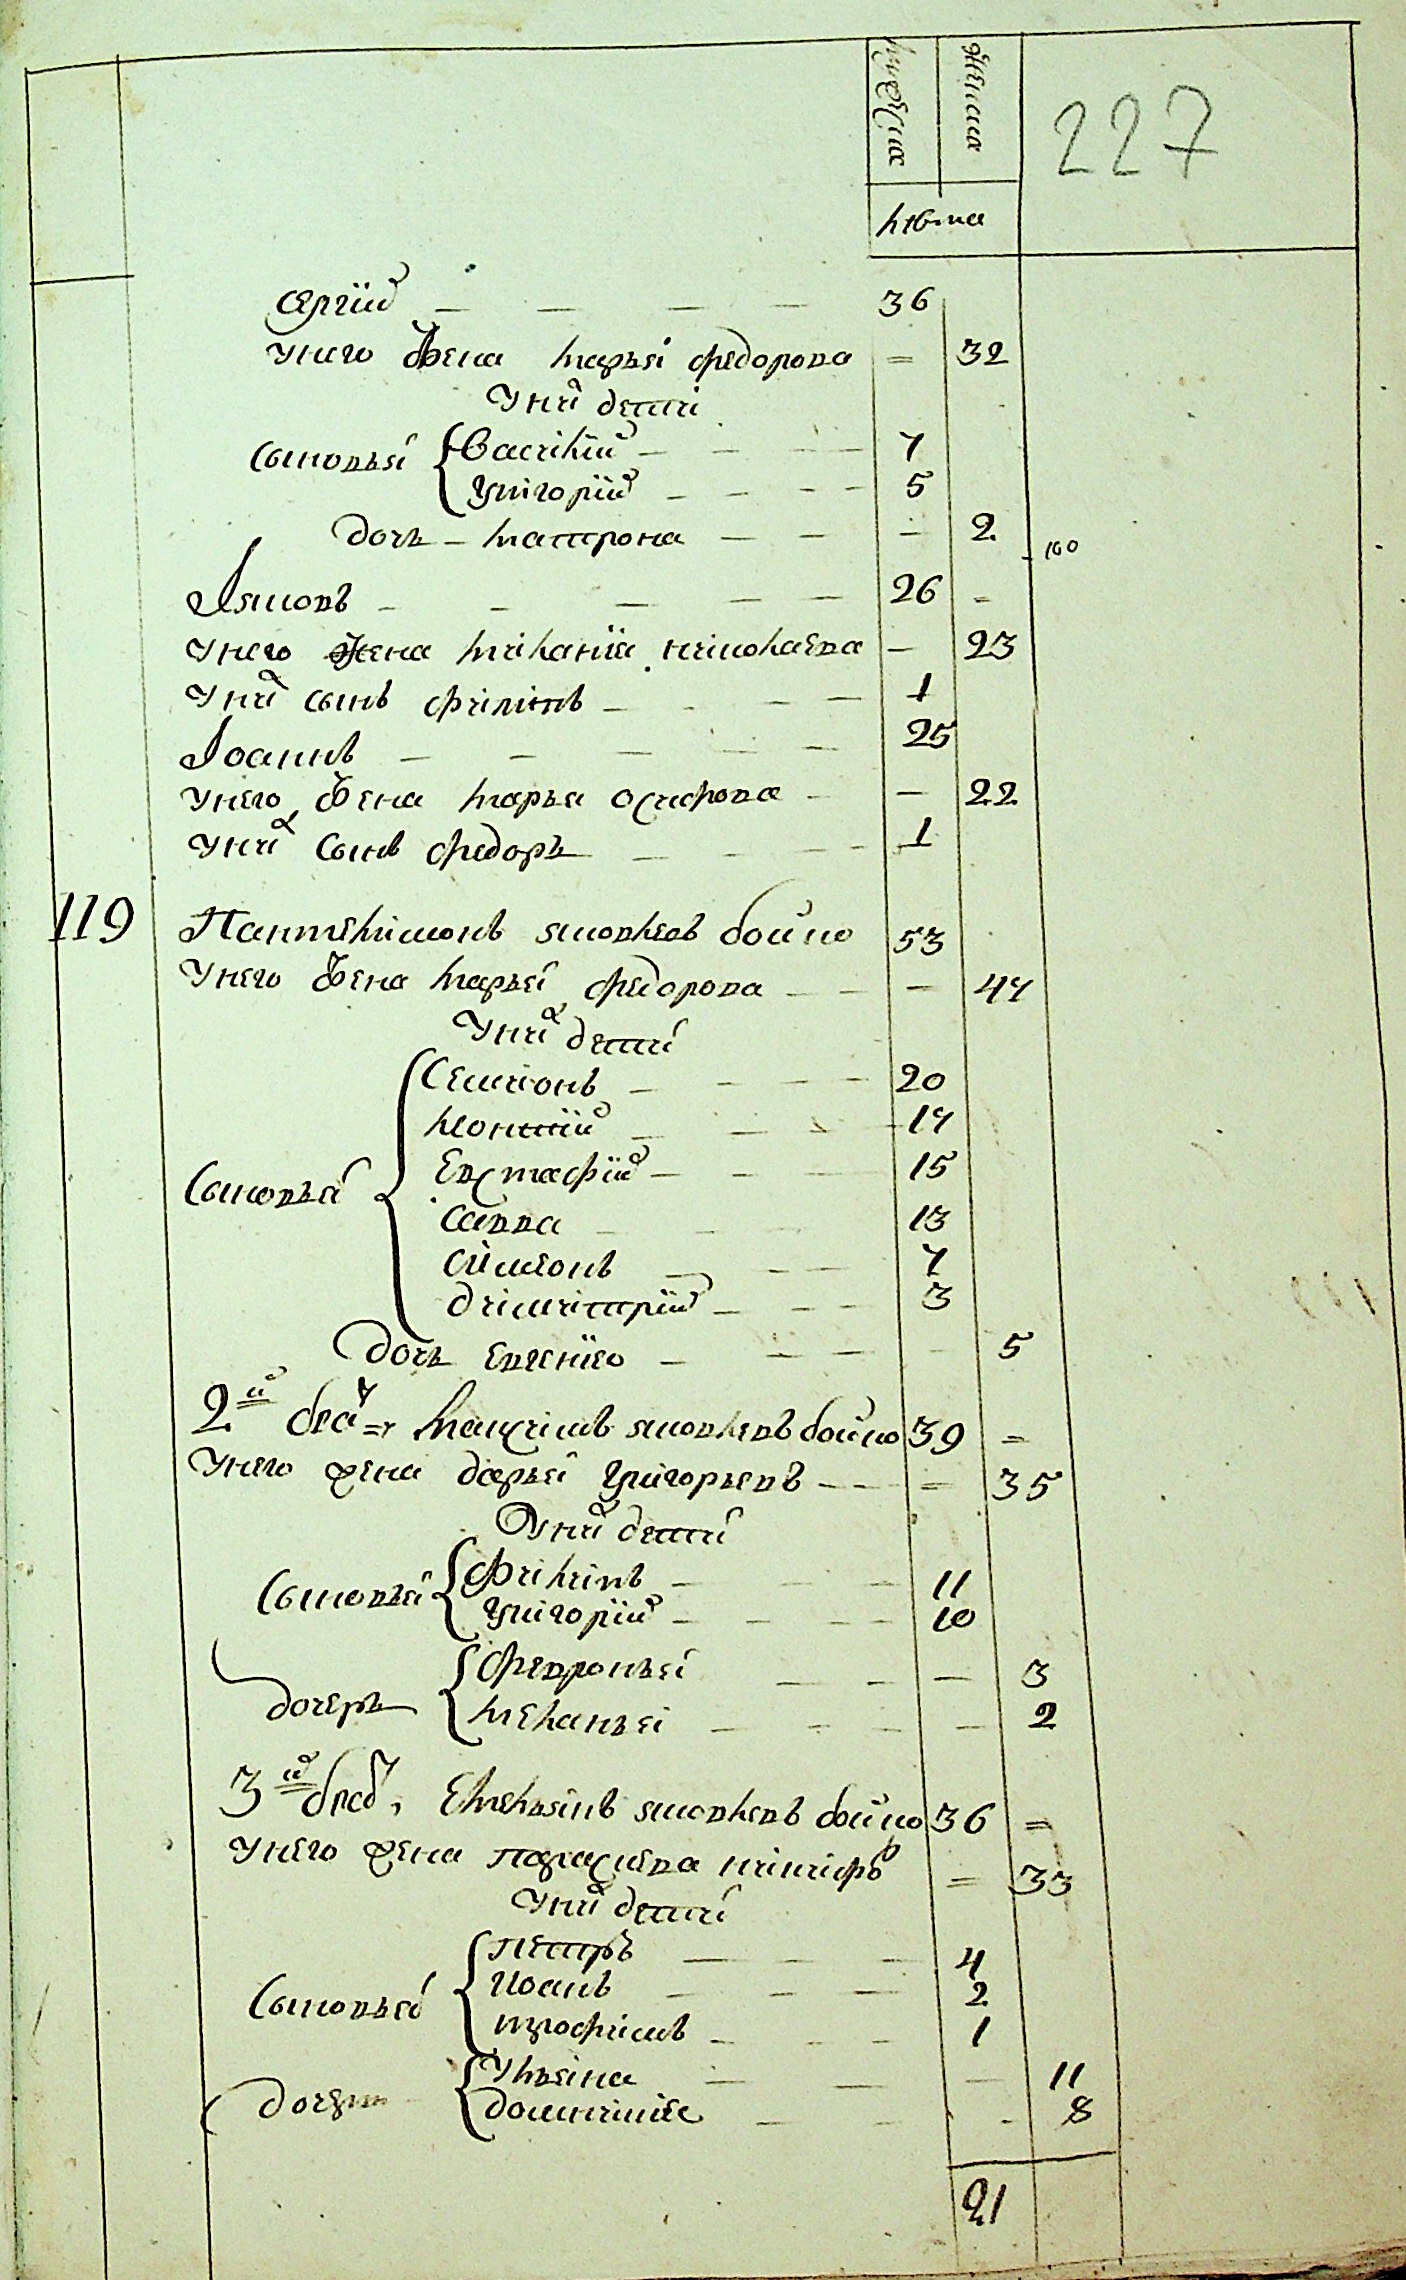 мужска
женска
227
лѣта
Сергій 36
унего жена марьѣ федорова 32
Унихъ дети
Сыновья Василій 7
Григорій 5
Дочь матрона 2
100
Яковъ 26
унего жена меланія николаева 23
Унихъ сынъ филипъ 1
Іоаннъ 25
унего жена марья осипова 22
Унихъ сынъ федоръ 1
119 Пантелимонъ яковлевъ бойко 53
Унего жена марьѣ федорова 47
Унихъ дети
Сыновья Семионъ 20
леонтій 17
Евстафій 15
Савва 13
Симеонъ 7
димитрій 3
Дочь Евгенію 5
2й братъ Максимъ яковлевъ бойко 39
Унего жена дарьѣ григорьевъ 35
Унихъ дети
Сыновья филипъ 11
григорій 10
дочерь февроньѣ 3
меланьѣ 2
3й братъ Емельянъ яковлевъ бойко 36
Унего жена параскева никифо 33
Унихъ дети
Сыновья петръ 4
Иоанъ 2
трофимъ 1
дочери Ульяна 11
домникіе 8
21